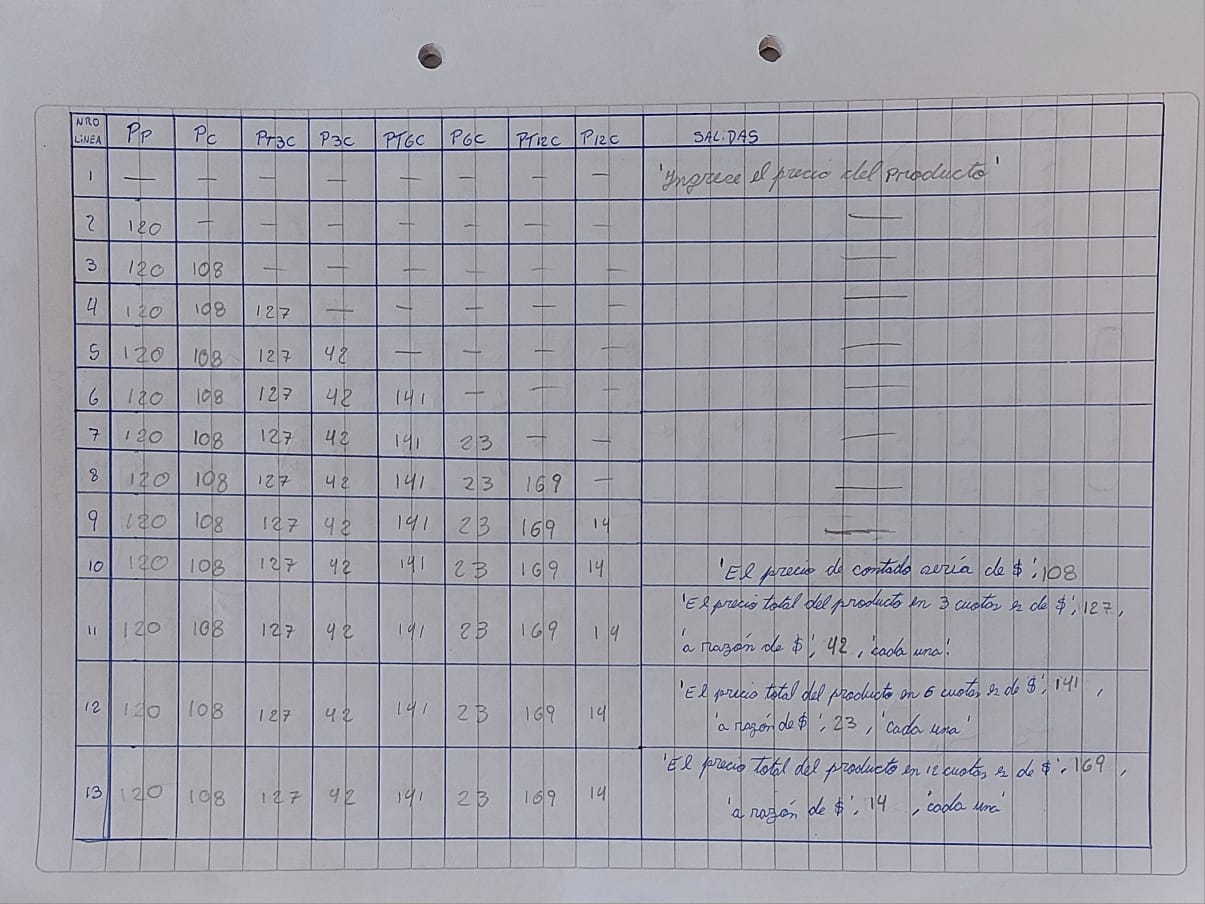 NRO LINEA PP PC PT3C P3C PT6C P6C PT12C P12C SALIDAS
1 — — — — — — — — 'Yngrece el precio del Producto'
2 120 — — — — — — — —
3 120 108 — — — — — — —
4 120 108 127 — — — — — —
5 120 108 127 42 — — — — —
6 120 108 127 42 141 — — — —
7 120 108 127 42 141 23 — — —
8 120 108 127 42 141 23 169 — —
9 120 108 127 42 141 23 169 14 —
10 120 108 127 42 141 23 169 14 'El precio de contado sería de $', 108
11 120 108 127 42 141 23 169 14 'El precio total del producto en 3 cuotas es de $', 127,
'a razón de $', 42, 'cada una'
12 120 108 127 42 141 23 169 14 'El precio total del producto en 6 cuotas es de $', 141,
'a razón de $', 23, 'cada una'
13 120 108 127 42 141 23 169 14 'El precio total del producto en 12 cuotas es de $', 169,
'a razón de $', 14, 'cada una'